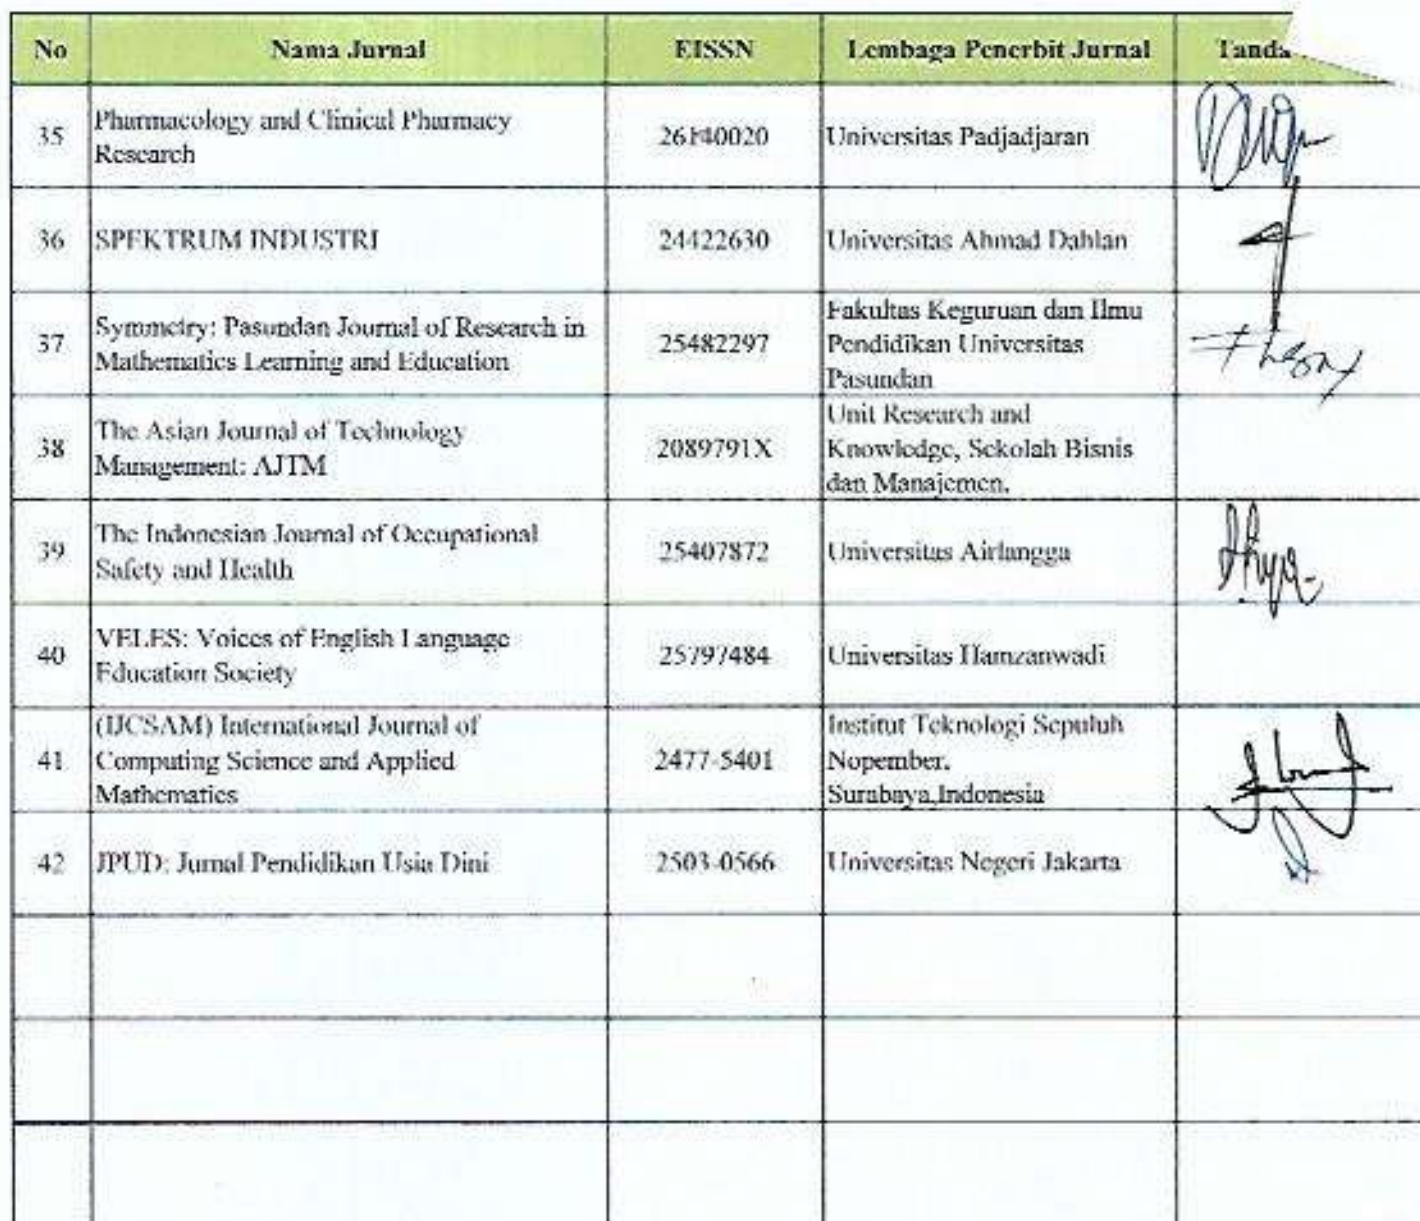 No Nama Jurnal EISSN Lembaga Penerbit Jurnal Tanda
35 Pharmacology and Clinical Pharmacy
Research 26140020 Universitas Padjadjaran
36 SPEKTRUM INDUSTRI 24422630 Universitas Ahmad Dahlan
37 Symmetry: Pasundan Journal of Research in
Mathematics Learning and Education 25482297 Fakultas Keguruan dan Ilmu
Pendidikan Universitas
Pasundan
38 The Asian Journal of Technology
Management: AJTM 2089791X Unit Research and
Knowledge, Sekolah Bisnis
dan Manajemen.
39 The Indonesian Journal of Occupational
Safety and Health 25407872 Universitas Airlangga
40 VELES: Voices of English Language
Education Society 25797484 Universitas Hamzanwadi
41 (IJCSAM) International Journal of
Computing Science and Applied
Mathematics 2477-5401 Institut Teknologi Sepuluh
Nopember.
Surabaya,Indonesia
42 JPUD: Jurnal Pendidikan Usia Dini 2503-0566 Universitas Negeri Jakarta